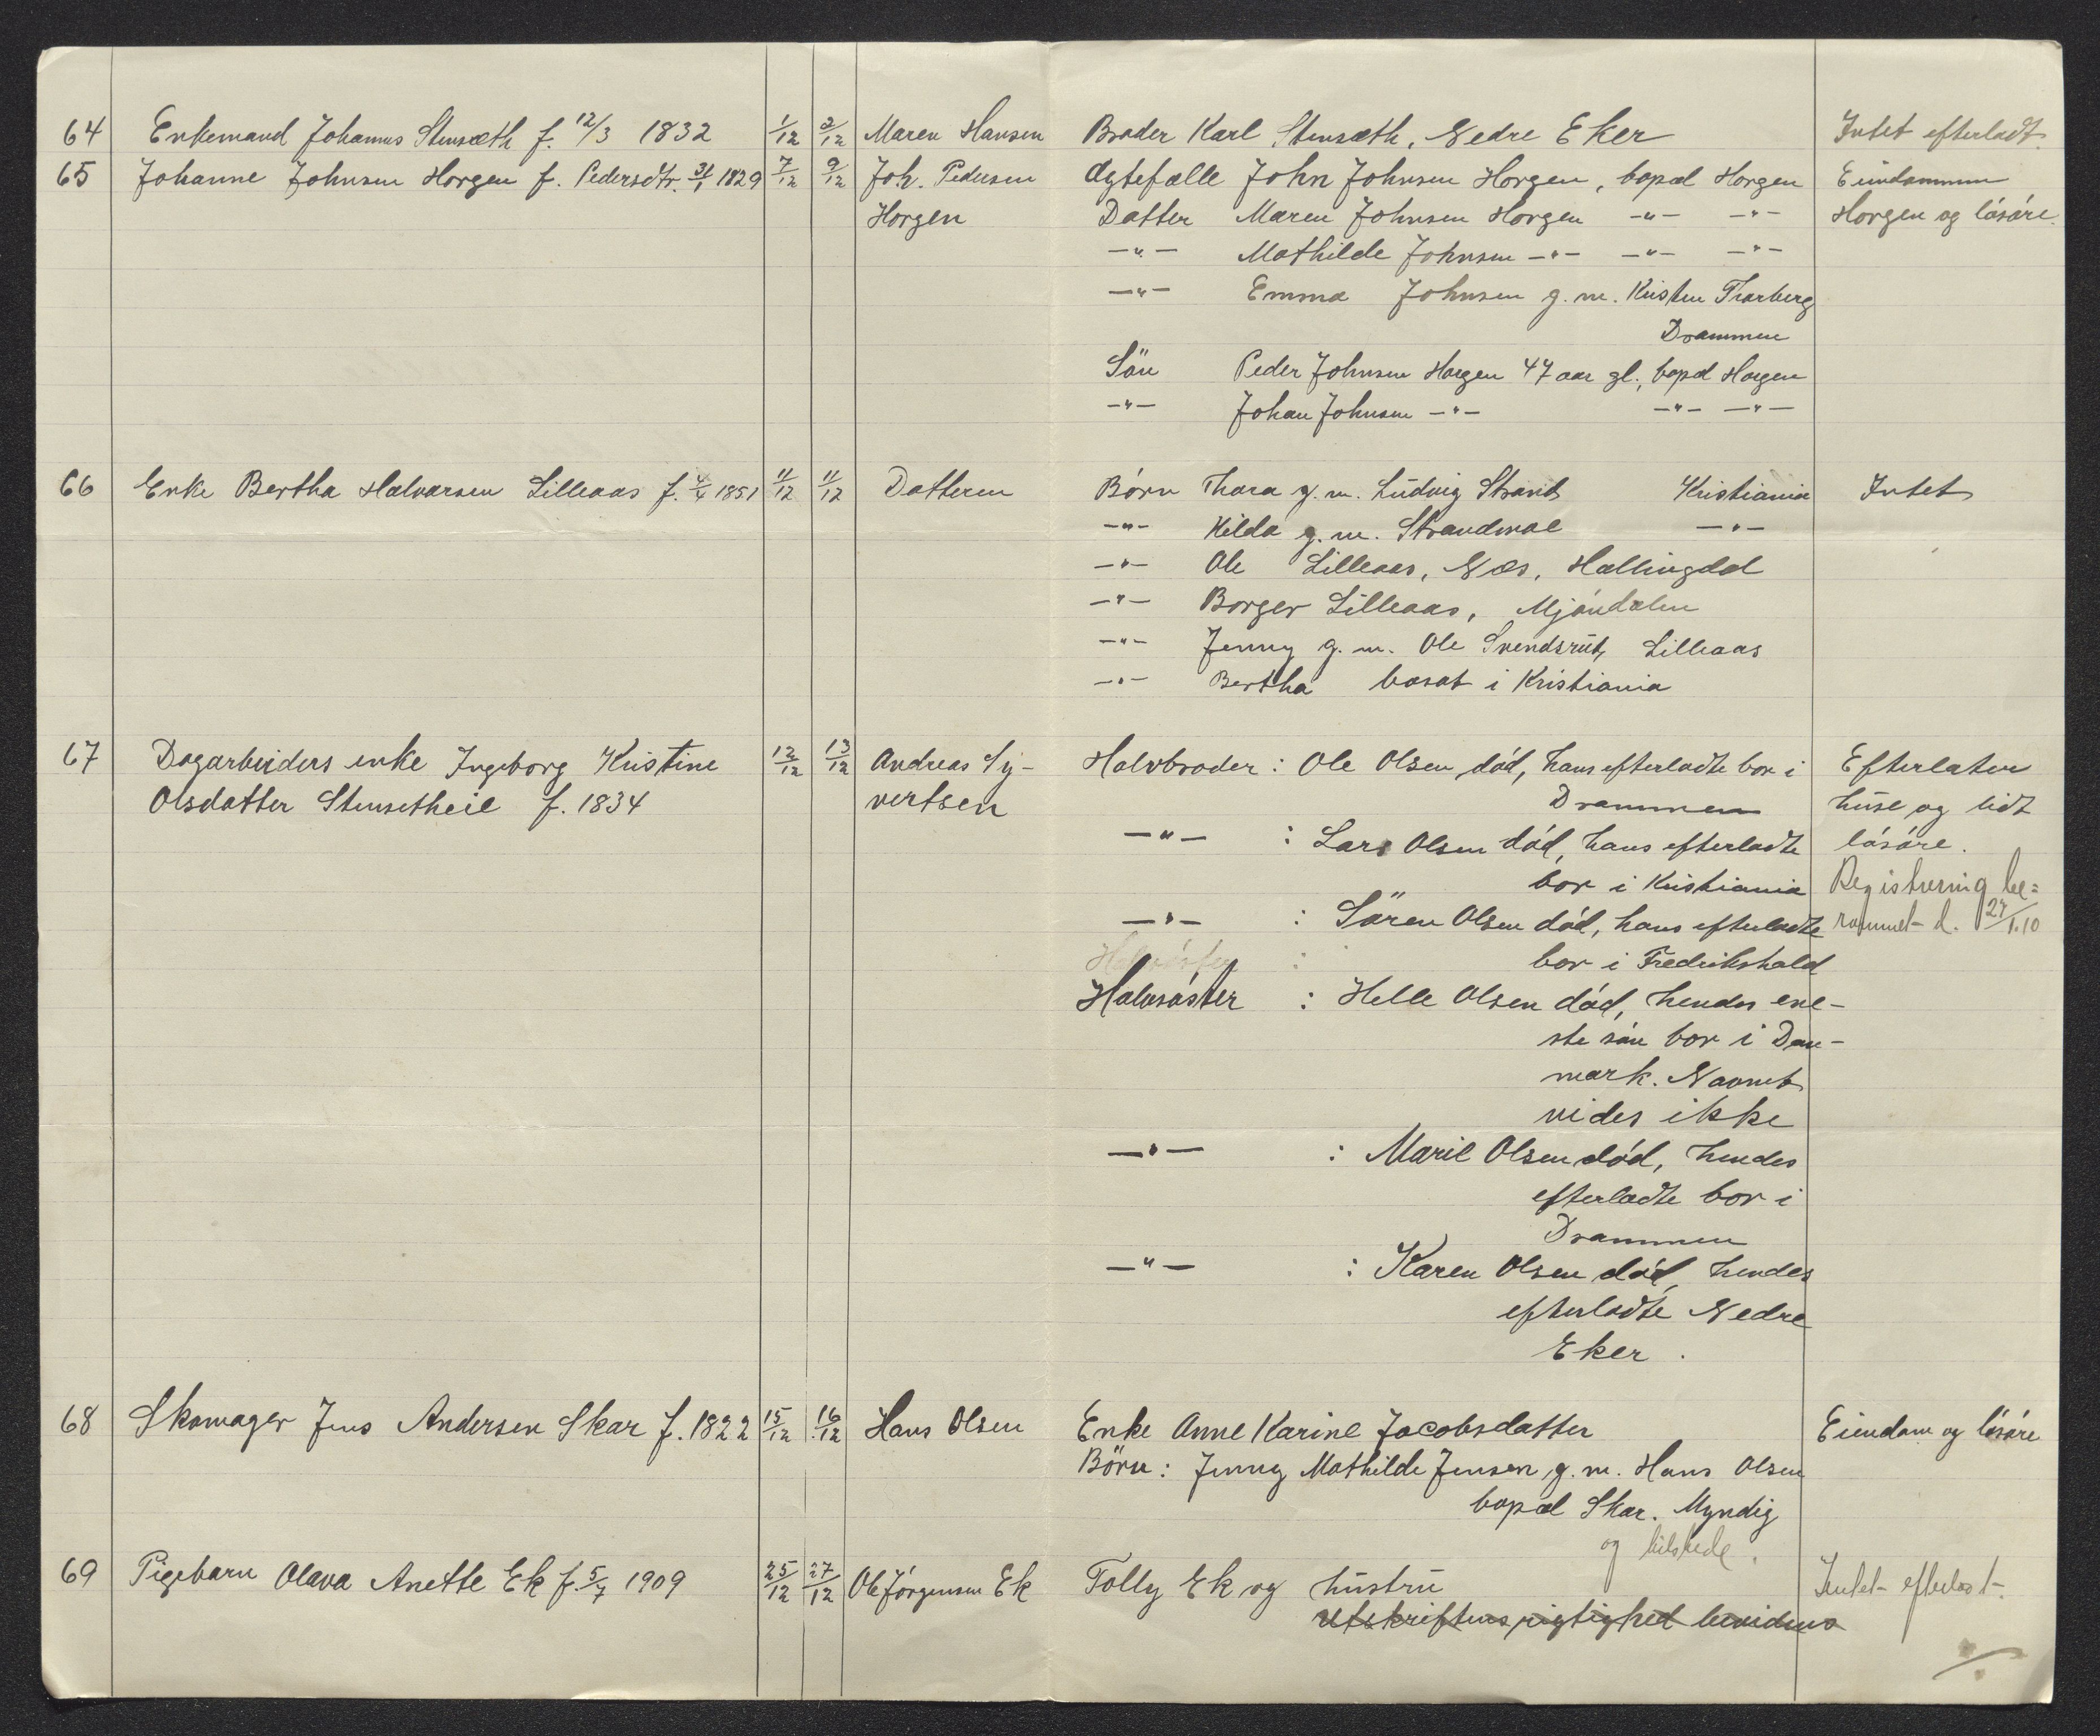 64 Enkemand Johannes Stensæth f. 12/3 1832 1/12 2/12 Maren Hansen Broder Karl Stensæth, Nedre Eker Intet efterladt.
65 Johanne Johnsen Horgen f. Pedersdtr. 31/1 1829 7/12 9/12 Joh. Pedersen Ægtefælle John Johnsen Horgen, bopæl Horgen Eiendommen
Horgen Datter Maren Johnsen Horgen -"- -"- Horgen og lösöre
-"- Mathilde Johnsen -"- -"- -"-
-"- Emma Johnsen g. m. Kristen Thorberg
Drammen
Sön Peder Johnsen Horgen 47 aar gl., bopæl Horgen
-"- Johan Johnsen -"- -"- -"-
66 Enke Bertha Halvorsen Lilleaas f. 4/4 1851 11/12 11/12 Datteren Börn Thora g. m. Ludvig Strand Kristiania Intet
-"- Hilda g. m. Strandmoe -"-
-"- Ole Lilleaas, Næs, Hallingdal
-"- Borger Lilleaas, Mjöndalen
-"- Jenny g. m. Ole Svendsrud, Lilleaas
-"- Bertha bosat i Kristiania
67 Dagarbeiders enke Ingeborg Kristine 12/12 13/12 Andreas Sy- Halvbroder : Ole Olsen död, hans efterladte bor i Efterlater
Olsdatter Stensetheie f. 1834 vertsen Drammen huse og lidt
-"- : Lars Olsen död, hans efterladte lösöre.
bor i Kristiania Registrering be=
-"- : Sören Olsen död, hans efterladte rammet d. 27/1.10
bor i Fredrikshald
Halvsöster : Helle Olsen död, hendes ene-
ste sön bor i Dan-
mark. Navnet
vides ikke
-"- : Marie Olsen död, hendes
efterladte bor i
Drammen
-"- : Karen Olsen död, hendes
efterladte Nedre
Eker.
68 Skomager Jens Andersen Skar f. 1822 15/12 16/12 Hans Olsen Enke Anne Karine Jacobsdatter Eiendom og lösöre
Börn : Jenny Mathilde Jensen g. m. Hans Olsen
bopæl Skar. Myndig
og tilstede.
69 Pigebarn Olava Anette Ek f. 5/7 1909 25/12 27/12 Ole Jörgensen Ek Tolly Ek og hustru Intet efterladt.
Utskriftens rigtighed bevidnes